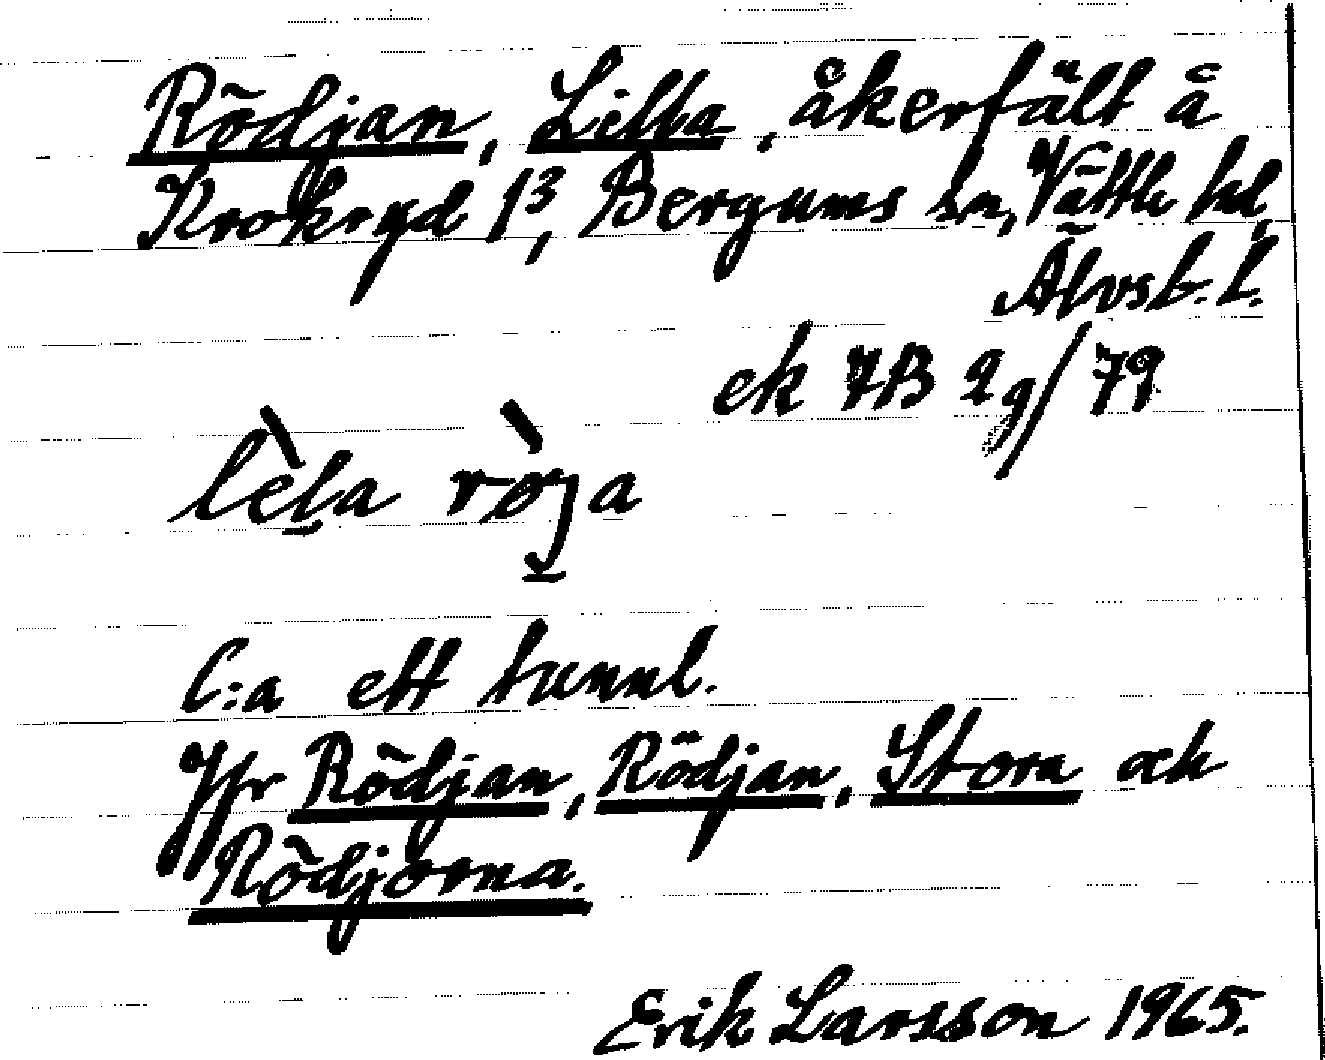 Rödjan, Lilla, åkerfält å
Krokryd 1³, Bergums sn, Vättle hd,
Älvsb. l.
ek 7B 2g/79
lèl̲a ròj̲a
C:a ett tunnl.
Jfr Rödjan, Rödjan, Stora och
Rödjorna.
Erik Larsson 1965.